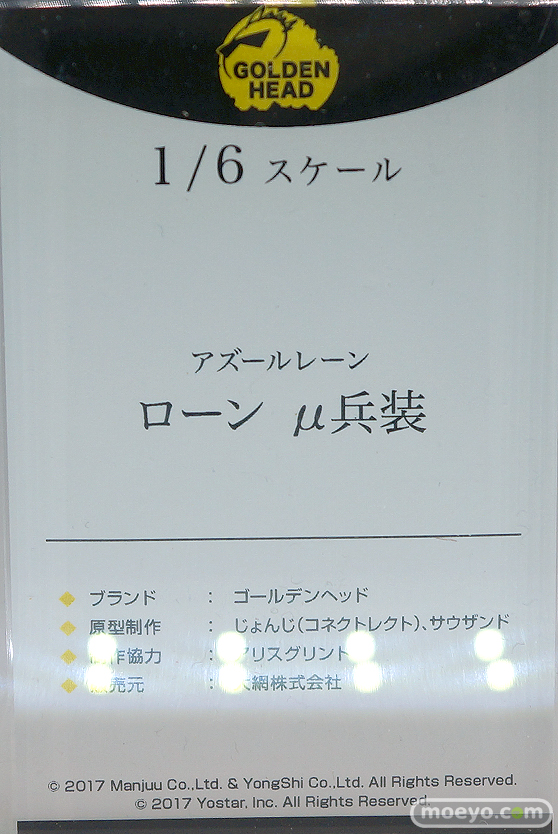 GOLDEN
HEAD
1/6 スケール
アズールレーン
ローン μ兵装
ブランド : ゴールデンヘッド
原型制作 : じょんじ(コネクトレクト)、サウザンド
作協力 : アリスグリント
売元 : 大網株式会社
© 2017 Manjuu Co.,Ltd. & YongShi Co.,Ltd. All Rights Reserved.
© 2017 Yostar, Inc. All Rights Reserved.
moeyo.com